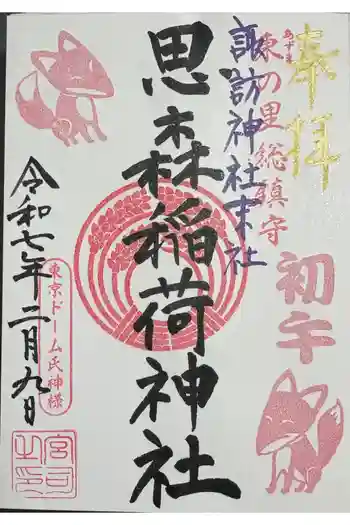 奉拝
あずま
東の里総鎮守
初午
諏訪神社末社
思森稲荷神社
東京ドーム氏神様
令和七年二月九日
宮司之印